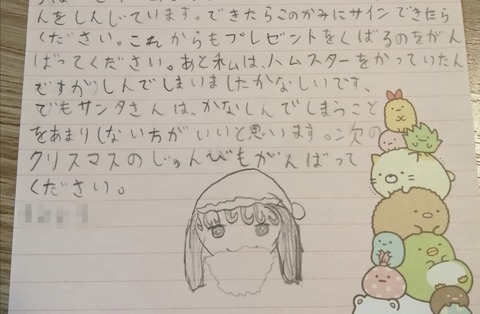 んをしんじています。できたらこのかみにサインできたら
ください。これからもプレゼントをくばるのをがん
ばってください。あと私は、ハムスターをかっていたん
ですがしんでしまいましたかなしいです、
でもサンタさんは、かなしんでしまうこと
をあまりしない方がいいと思います。次の
クリスマスのじゅんびもがんばって
ください。